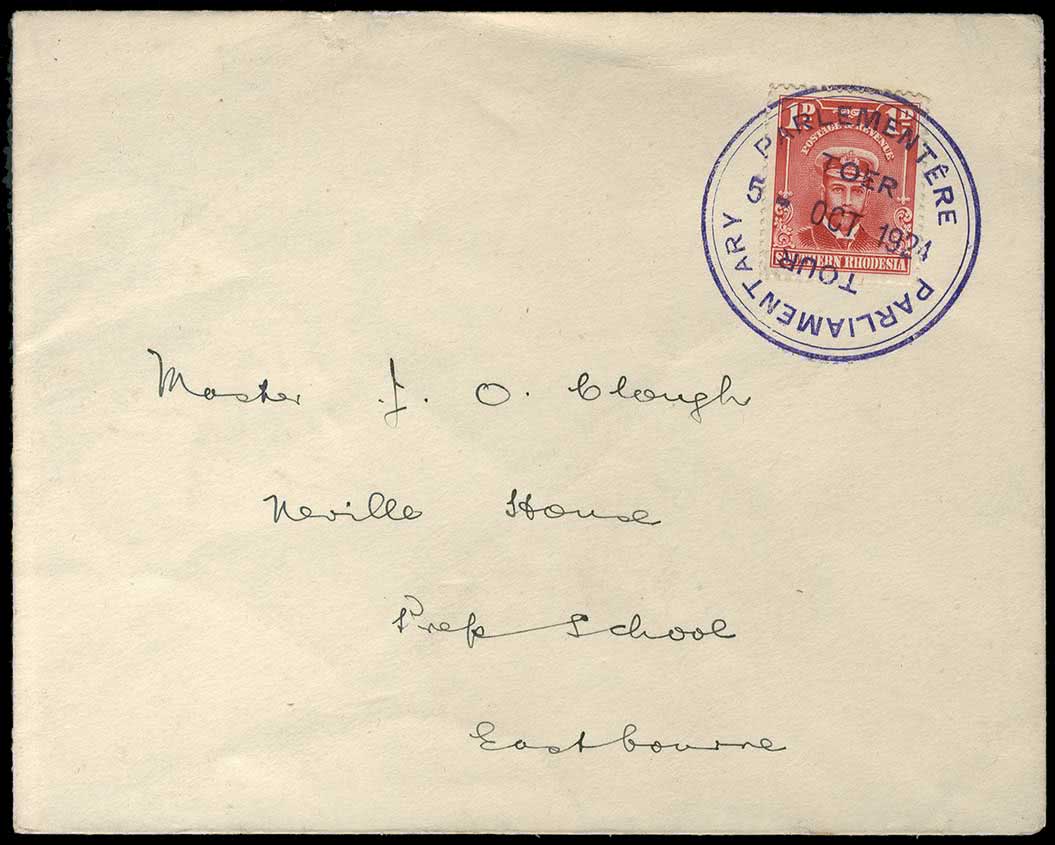 1D 1D
POSTAGE & REVENUE
SOUTHERN RHODESIA
PARLEMENTÊRE
TOER
5 OCT 1924
TOUR
PARLIAMENTARY
Master J. O. Clough
Neville House
Prep School
Eastbourne